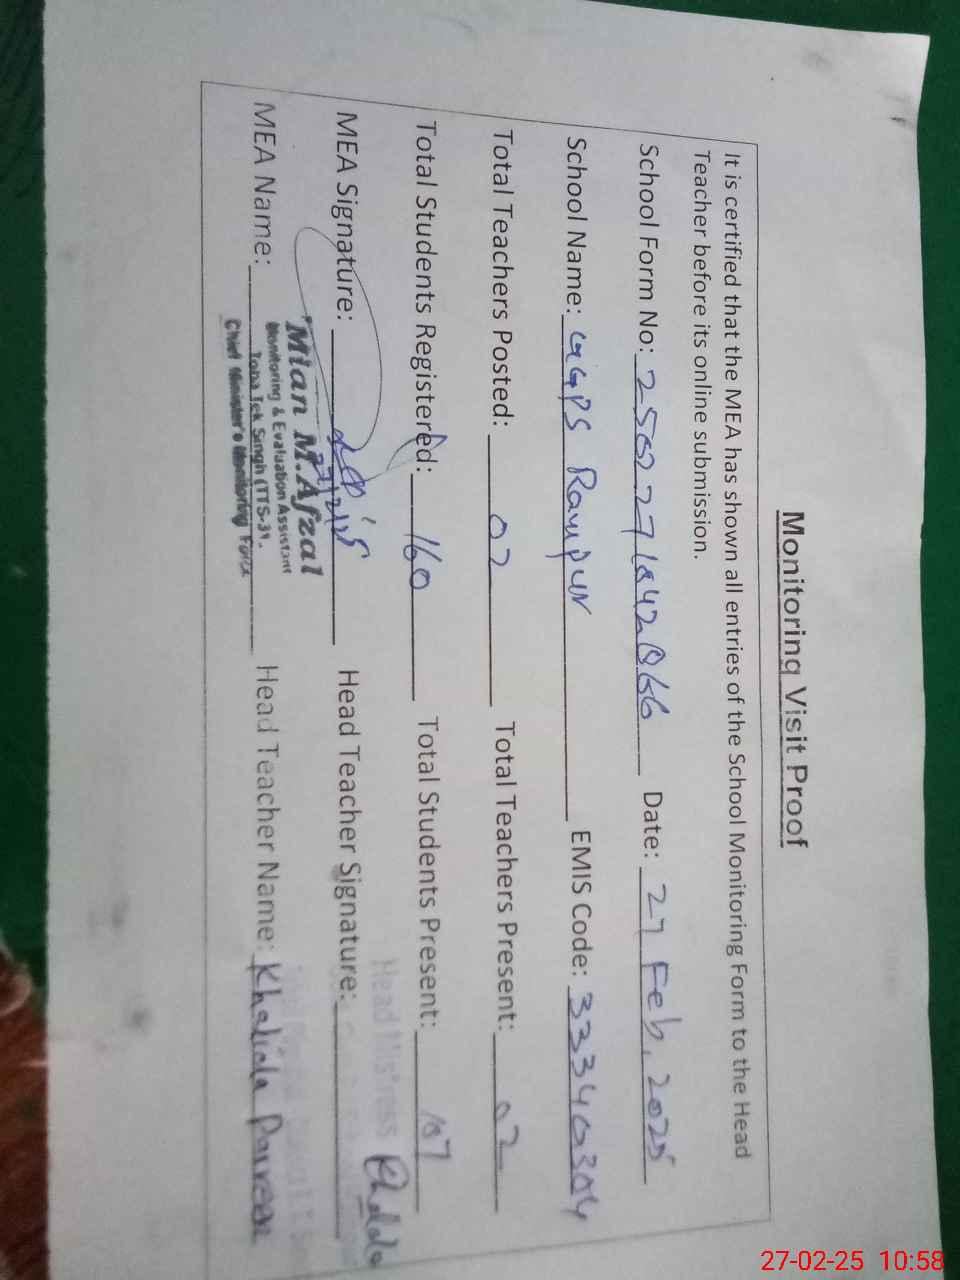 Monitoring Visit Proof
It is certified that the MEA has shown all entries of the School Monitoring Form to the Head
Teacher before its online submission.
School Form No: 2502271042066 Date: 27 Feb, 2025
School Name: GGPS Rampur EMIS Code: 33340304
Total Teachers Posted: 02 Total Teachers Present: 02
Total Students Registered: 160 Total Students Present: 107
MEA Signature: 27/2/25 Head Teacher Signature: Khalida
Head Mistress
MEA Name: Mian M.Afzal Head Teacher Name: Khalida Parveen
Monitoring & Evaluation Assistant
Toba Tek Singh (TTS-31)
Chief Minister's Monitoring Force
27-02-25 10:58